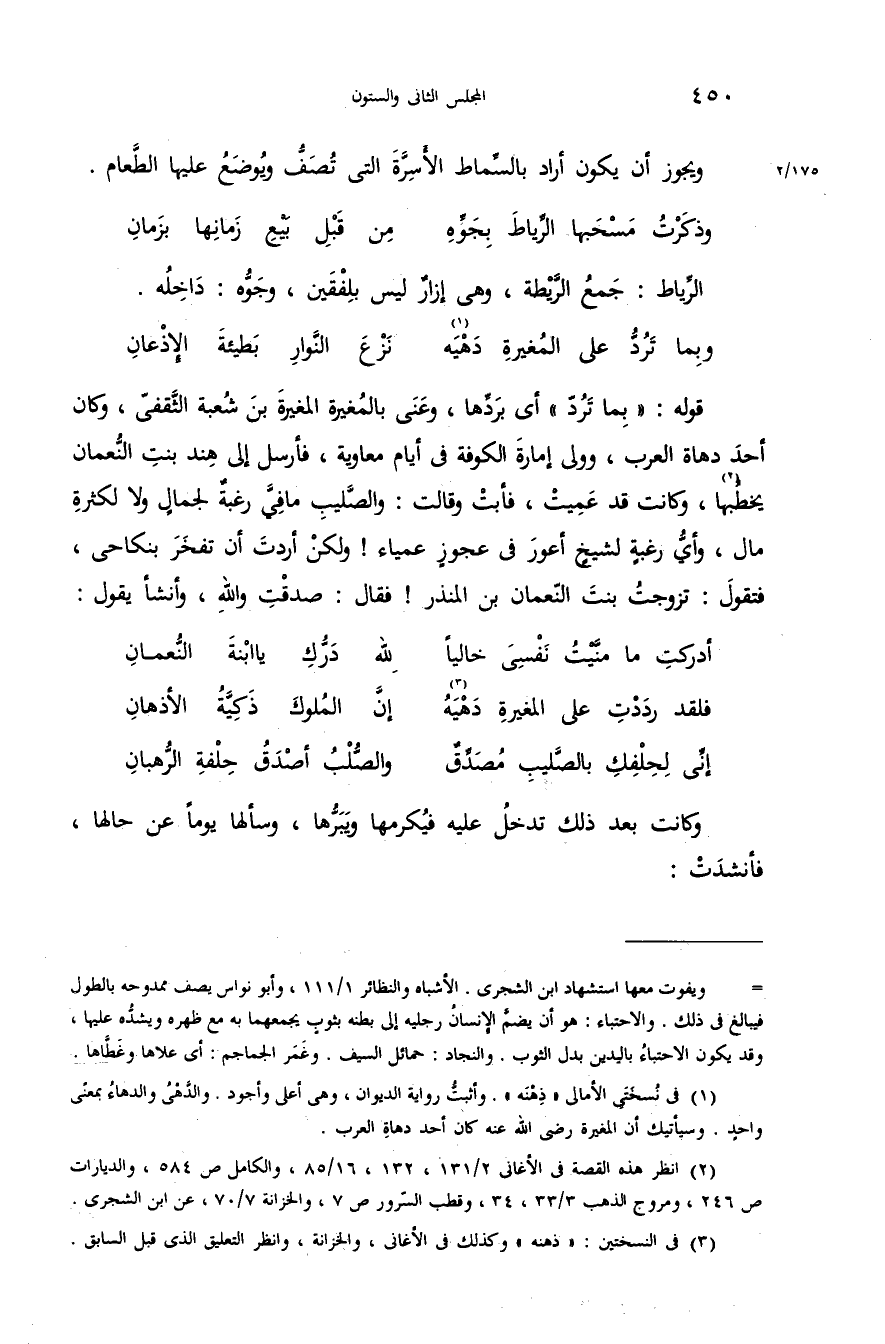 ٤٥٠ المجلس الثانى والستون
٢/١٧٥ ويجوز أن يكون أراد بالسِّماط الأَسِرَّةَ التى تُصَفُّ ويُوضَعُ عليها الطَّعام .
وذكَرْتُ مَسْحَبها الرِّياطَ بِجَوِّهِ مِن قَبْلِ بَيْعِ زَمانِها بزَمانِ
الرِّياط : جَمعُ الرَّيْطة ، وهى إزارٌ ليس بلِفْقَين ، وجَوُّه : دَاخِلُه .
وبِما تَرُدُّ على المُغيرةِ دَهْيَه (١) نَزْعَ النَّوارِ بَطيئةَ الإِذْعانِ
قوله : « بِما تَرُدّ » أى بَردِّها ، وعَنَى بالمُغيرة المغيرةَ بنَ شُعبة الثَّقفىّ ، وكان
أحدَ دهاة العرب ، وولى إمارةَ الكوفة فى أيام معاوية ، فأرسل إلى هِند بنتِ النُّعمان
يخطُبها (٢) ، وكانت قد عَمِيتْ ، فأبتْ وقالت : والصَّليبِ مافِيَّ رغبةٌ لجمالٍ ولا لكثرةِ
مال ، وأىُّ رغبةٍ لشيخٍ أعورَ فى عجوزٍ عمياء ! ولكنْ أردتَ أن تفخَرَ بنكاحى ،
فتقولَ : تزوجتُ بنتَ النّعمان بن المنذر ! فقال : صدقْتِ واللهِ ، وأنشأ يقول :
أدركتِ ما منَّيْتُ نَفْسِىَ خالياً لله دَرُّكِ ياابْنةَ النُّعمـانِ
فلقد ردَدْتِ على المغيرةِ دَهْيَهُ (٣) إنَّ المُلوكَ ذَكِيَّةُ الأذهانِ
إنِّى لِحِلفِكِ بالصَّليبِ مُصَدِّقٌ والصُّلْبُ أصْدَقُ حِلفةِ الرُّهبانِ
وكانت بعد ذلك تدخلُ عليه فيُكرمها ويَبَرُّها ، وسألها يوماً عن حالها ،
فأنشدَتْ :
= ويفوت معها استشهاد ابن الشجرى . الأشباه والنظائر ١١١/١ ، وأبو نواس يصف ممدوحه بالطول
فيبالغ فى ذلك . والاحتباء : هو أن يضمَّ الإنسانُ رجليه إلى بطنه بثوبٍ يجمعهما به مع ظهره ويشدُّه عليها ،
وقد يكون الاحتباءُ باليدين بدل الثوب . والنجاد : حمائل السيف . وغَمَر الجماجم : أى علاها وغَطَّاها .
(١) فى نُسخَتَي الأمالى « ذِهْنَه » . وأثبتُّ رواية الديوان ، وهى أعلى وأجود . والدَّهْىُ والدهاءُ بمعنًى
واحدٍ . وسيأتيك أن المغيرة رضى الله عنه كان أحد دهاةِ العرب .
(٢) انظر هذه القصة فى الأغانى ١٣١/٢ ، ١٣٢ ، ٨٥/١٦ ، والكامل ص ٥٨٤ ، والديارات
ص ٢٤٦ ، ومروج الذهب ٣٣/٣ ، ٣٤ ، وقطب السّرور ص ٧ ، والخزانة ٧٠/٧ ، عن ابن الشجرى .
(٣) فى النسختين : « ذهنه » وكذلك فى الأغانى ، والخزانة ، وانظر التعليق الذى قبل السابق .